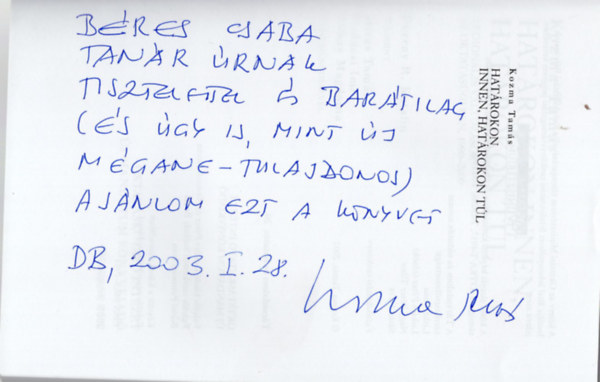 BÉRES CSABA
TANÁR ÚRNAK
TISZTELETTEL ÉS BARÁTILAG
(ÉS ÚGY IS, MINT ÚJ
MÉGANE-TULAJDONOS)
AJÁNLOM EZT A KÖNYVET
DB, 2003. I. 28.
Kozma Tamás
Kozma Tamás
HATÁROKON
INNEN, HATÁROKON TÚL